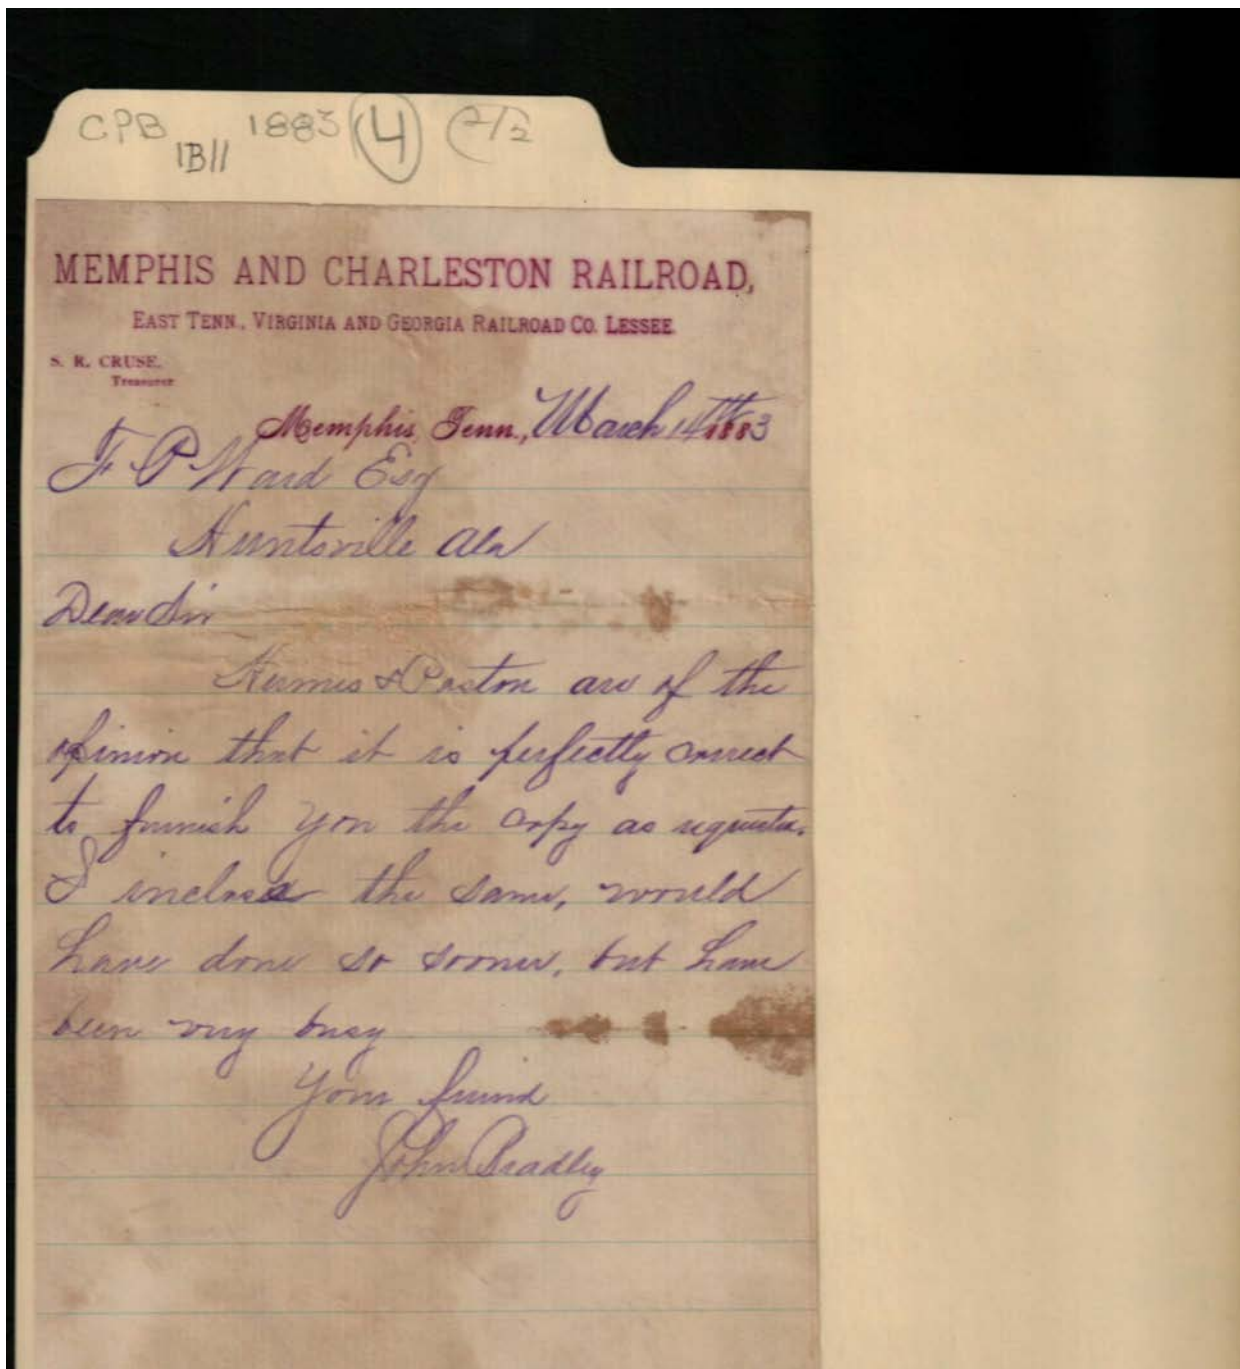 CPB 1883 4
1B11
MEMPHIS AND CHARLESTON RAILROAD,
EAST TENN., VIRGINIA AND GEORGIA RAILROAD CO. LESSEE.
S. R. CRUSE,
Treasurer
Memphis, Tenn., March 14th 1883
F P Ward Esq
Huntsville Ala
Dear Sir
& Poston are of the
opinion that it is perfectly correct
to furnish you the copy as requested.
I inclose the same, would
have done so sooner, but have
been very busy
Your friend
John Bradley